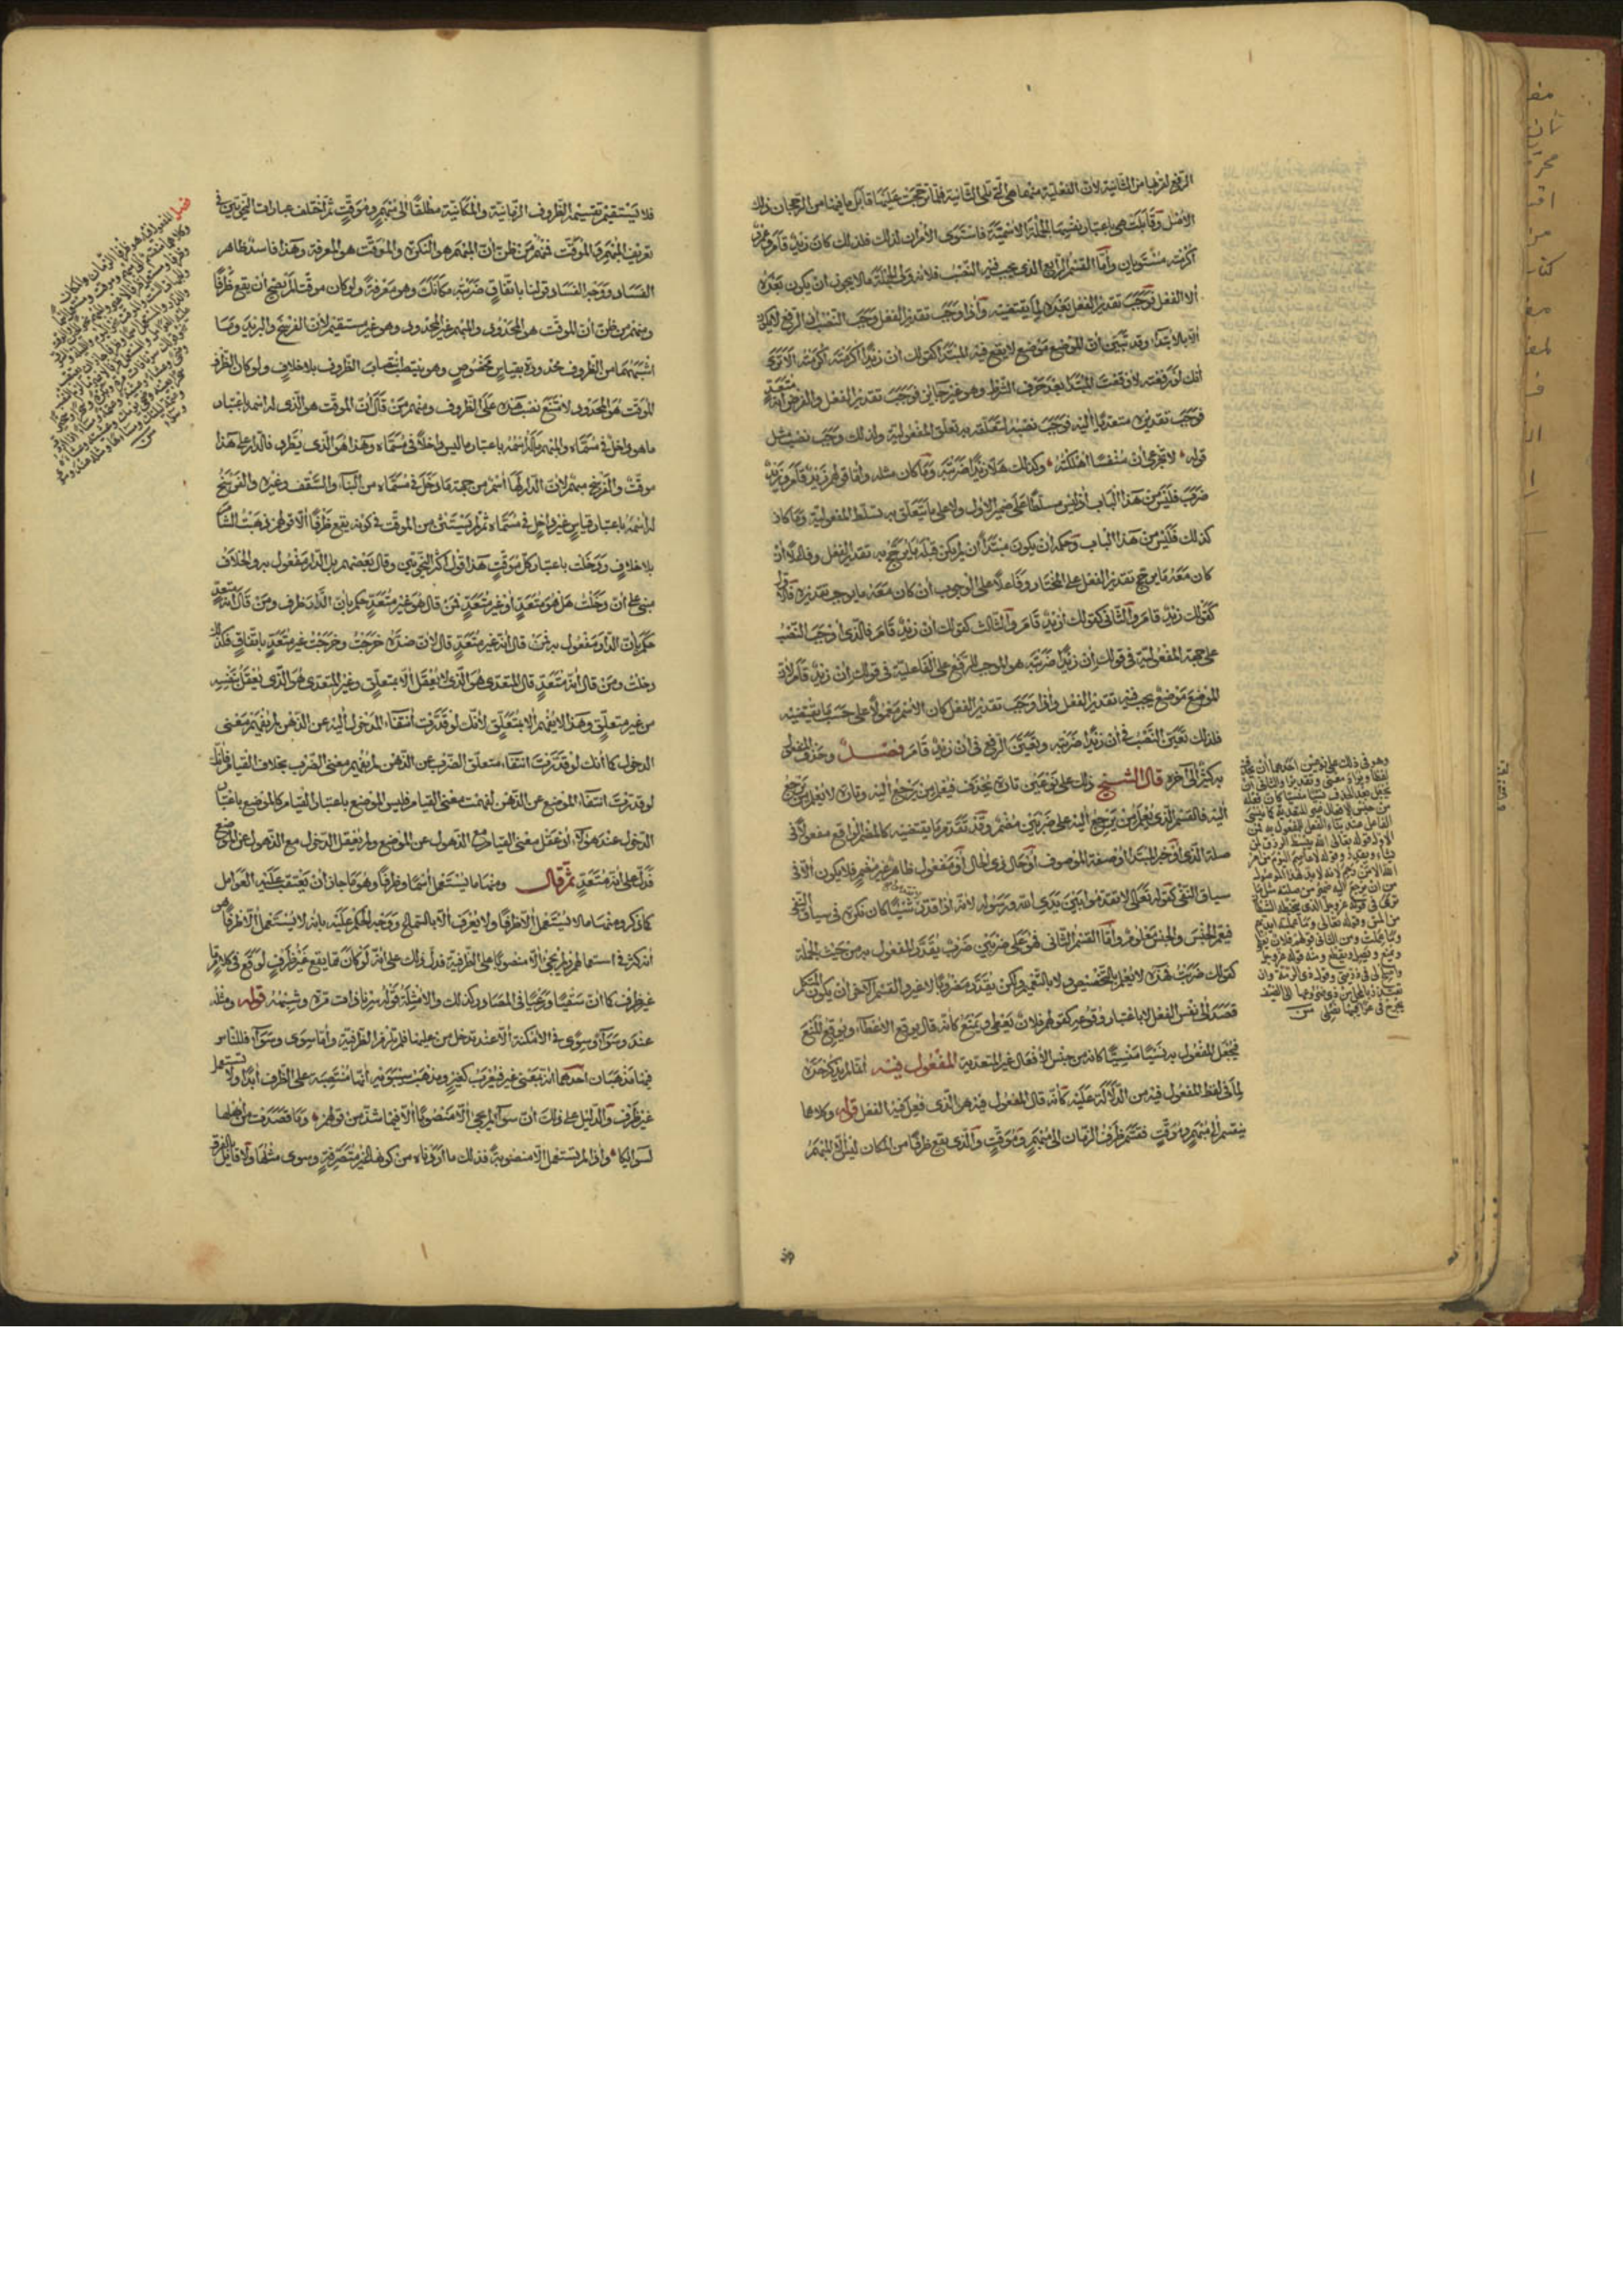 الرفع لقربها من الثانية لأن الفعلية منهما هي التي تلي الثانية فلما ترجحت عليها قابل ما فيها من الترجيحان ذلك
الأصل وقابلت هي باعتبار نفسها الجملة الاسمية فاستوى الأمران لذلك فلذلك كان زيد قام وعمرو
أكرمته مستويان وأما القسم الرابع الذي يجب فيه النصب فلأنه ولي الجملة ما لا يجوز أن يكون بعده
إلا الفعل فوجب تقدير الفعل بعده لما يقتضيه وإذا وجب تقدير الفعل وجب النصب لأن الرفع لا يكون
إلا بالابتداء وقد تبين أن الموضع موضع لا يقع فيه المبتدأ كقولك إن زيدا أكرمته أكرمته ألا ترى
أنك لو رفعته لأوقعت المبتدأ بعد حرف الشرط وهو غير جائز فوجب تقدير الفعل والفرض أنه متعد
فوجب تقديره متعديا إليه فوجب نصبه لتعلقه به تعلق المفعولية ولذلك وجب نصب مثل
قوله لا تجزعي إن منفسا أهلكته وكذلك هلا زيدا ضربته وما كان مثله وأما قولهم زيد قام وزيد
ضرب فليس من هذا الباب إذ ليس مسلطا على ضمير الأول ولا على ما يتعلق به تسلط المفعولية وما كان
كذلك فليس من هذا الباب وحكمه أن يكون مبتدأ إن لم يكن قبله ما يرجح به تقدير الفعل وفاعلا إن
كان معه ما يرجح تقدير الفعل على المختار وفاعلا على الوجوب إن كان معه ما يوجب تقديره فالأول
كقولك زيد قام والثاني كقولك أزيد قام والثالث كقولك إن زيد قام فالذي أوجب النصب
على جهة المفعولية في قولك إن زيدا ضربته هو الموجب للرفع على الفاعلية في قولك إن زيد قام لأن
الموضع موضع يجب فيه تقدير الفعل وإذا وجب تقدير الفعل كان الاسم معمولا على حسب ما يقتضيه
فلذلك تعين النصب في إن زيدا ضربته وتعين الرفع في إن زيد قام فصل وحذف المفعول
به كثير إلى آخره قال الشيخ ذلك على نوعين تارة يحذف فيعلم من يرجع إليه وتارة لا يعلم من يرجع
إليه فالقسم الذي يعلم من يرجع إليه على ضربين مضمر وقد تقدم ما يقتضيه كالمضمر الواقع مفعولا في
صلة الذي أو خبر المبتدأ أو صفة الموصوف أو حال ذي الحال أو مفعول ظاهر غير مضمر فلا يكون إلا في
سياق النفي كقوله تعالى لا تقدموا بين يدي الله ورسوله لأنه إذا قدر شيئا كان نكرة في سياق النفي
فيعم الجنس والجنس معلوم وأما القسم الثاني فهو على ضربين ضرب يقدر المفعول به من حيث الجملة
كقولك ضربت فهذه لا يعلم بالتخصيص ولا بالتعميم ولكن يقدر مضروبا لا غير والقسم الآخر أن يكون المتكلم
قصد إلى نفس الفعل لا باعتبار وقوعه كقولهم فلان يعطي ويمنع كأنه قال يوقع الإعطاء ويوقع المنع
فيجعل المفعول به نسيا منسيا كأنه من جنس الأفعال غير المتعدية المفعول فيه إنما لم يذكر حده
لما في لفظ المفعول فيه من الدلالة عليه كأنه قال المفعول فيه هو الذي فعل فيه الفعل قوله وكلاهما
ينقسم إلى مبهم وموقت فقسم ظرف الزمان إلى مبهم وموقت والذي يقع ظرفا من المكان ليس إلا المبهم
وهو في ذلك على نوعين أحدهما أن يحذف
لفظا ويراد معنى وتقديرا والثاني أن
يجعل بعد الحذف نسيا منسيا كأن فعله
من جنس الأفعال غير المتعدية كما ينسى
الفاعل عند بناء الفعل للمفعول به فمن
الأول قوله تعالى الله يبسط الرزق لمن
يشاء ويقدر وقوله لا عاصم اليوم من أمر
الله إلا من رحم لأنه لا بد لهذا الموصول
من أن يرجع إليه ضمير من صلته مثل ما
ترى في قوله عز وجل الذي يتخبطه الشيطان
من المس وقوله تعالى وما عملته أيديهم
وما عملت ومن الثاني قولهم فلان يعطي
ويمنع ويصل ويقطع ومنه قوله عز وجل
وأصلح لي في ذريتي وقول ذي الرمة وإن
تعتذر بالمحل من ذي ضروعها إلى الضيف
يجرح في عراقيبها نصلي
فلا يستقيم تقسيمه الظروف الزمانية والمكانية مطلقا إلى مبهم وموقت ثم اختلف عبارات النحويين في
تعريف المبهم والموقت فمنهم من ظن أن المبهم هو النكرة والموقت هو المعرفة وهذا فاسد ظاهر
الفساد ووجه الفساد قولنا باتفاق ضربته مكانك وهو معرفة ولو كان موقتا لم يصح أن يقع ظرفا
ومنهم من ظن أن الموقت هو المحدود والمبهم غير المحدود وهو غير مستقيم لأن الفرسخ والبريد وما
أشبههما من الظروف محدودة بقياس مخصوص وهو ينتصب انتصاب الظروف بلا خلاف ولو كان الظرف
الموقت هو المحدود لامتنع نصب هذه على الظروف ومنهم من قال إن الموقت هو الذي له اسم باعتبار
ما هو داخل في مسماه والمبهم ما له اسمه باعتبار ما ليس داخلا في مسماه وهذا هو الذي يطرد فالدار على هذا
موقت والفرسخ مبهم لأن الدار لها اسم من جهة ما دخل في مسماه من البناء والسقف وغيره والفرسخ
له اسمه باعتبار قياس غير داخل في مسماه ثم لم يستثن من الموقت في كونه يقع ظرفا إلا قولهم ذهبت الشام
بلا خلاف ودخلت باعتبار كل موقت هذا قول أكثر النحويين وقال بعضهم بل الدار مفعول به والخلاف
مبني على أن دخلت هل هو متعد أو غير متعد فمن قال هو غير متعد حكم بأن الدار ظرف ومن قال إنه متعد
حكم بأن الدار مفعول به فمن قال إنه غير متعد قال لأن ضده خرجت وخرجت غير متعد باتفاق فكذلك
دخلت ومن قال إنه متعد قال المتعدي هو الذي لا يعقل إلا بمتعلق وغير المتعدي هو الذي يعقل بنفسه
من غير متعلق وهذا لا يفهم إلا بمتعلق لأنك لو قدرت انتفاء المدخول إليه عن الذهن لم يفهم معنى
الدخول كما أنك لو قدرت انتفاء متعلق الضرب عن الذهن لم يفهم معنى الضرب بخلاف القيام فإنك
لو قدرت انتفاء الموضع عن الذهن لفهمت معنى القيام فليس الموضع باعتبار القيام كالموضع باعتبار
الدخول عند هؤلاء إذ عقل معنى القيام مع الذهول عن الموضع ولم يعقل الدخول مع الذهول عن الموضع
فدل على أنه متعد ثم قال ومنها ما يستعمل اسما وظرفا وهو ما جاز أن يعتقب عليه العوامل
كما ذكر ومنها ما لا يستعمل إلا ظرفا ولا يعرف إلا بالسماع ووجه الحكم عليه بأنه لا يستعمل إلا ظرفا هو
أنه كثر في استعمالهم ولم يجئ إلا منصوبا على الظرفية فدل ذلك على أنه لو كان مما يقع غير ظرف لوقع في كلامهم
غير ظرف كما أن سقيا ورعيا في المصادر كذلك والأمثلة قوله سرنا ذات مرة وشبهه قوله ومثله
عند وسواء وسوى في الأمكنة إلا عند تدخل من عليها فلم يلزم الظرفية وأما سوى وسواء فللناس
فيهما مذهبان أحدهما أنه بمعنى غير فيعرب كغير ومذهب سيبويه أنها منتصبة على الظرف أبدا ولا تستعمل
غير ظرف والدليل على ذلك أن سواء لم يجئ إلا منصوبا إلا فيما شذ من قولهم وما قصدت من أهلها
لسوائكا وإذا لم تستعمل إلا منصوبة فذلك ما أردناه من كونها غير متصرفة وسوى مثلها ولا قائل بالفرق
فصل المفعول فيه هو ظرفا الزمان والمكان
وكلاهما منقسم إلى مبهم وموقت ومستعمل اسما
وظرفا ومستعمل ظرفا لا غير